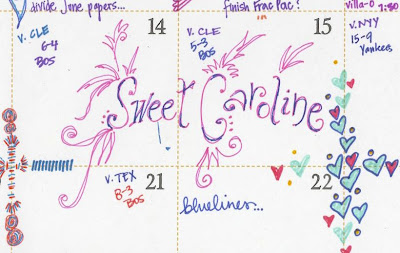 divide June papers...
finish Frac Pac?
Villa-O 7:30
14
15
V. CLE
6-4
BOS
V. CLE
5-3
BOS
V. NYY
15-9
Yankees
Sweet Caroline
21
22
V. TEX
8-3
BOS
bluelines...